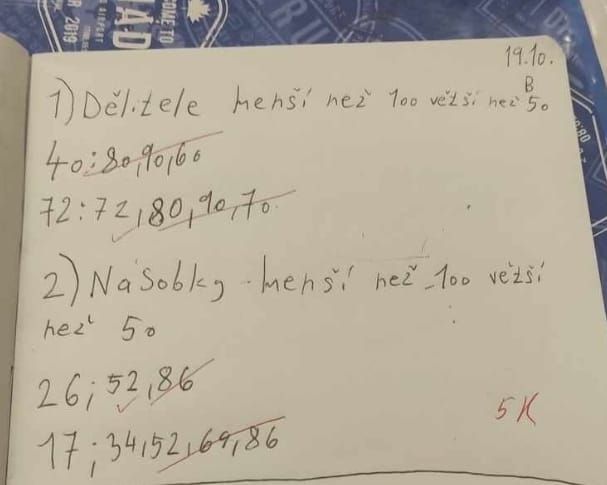 OME TO
R 2019
LÁD
RU
19.10.
B
1) Dělitele menší než 100 větší než 50
40:80,90,60
72:72,80,90,70
2) Násobky menší než 100 větší
než 50
26; 52, 86
17; 34, 52, 69, 86
5K